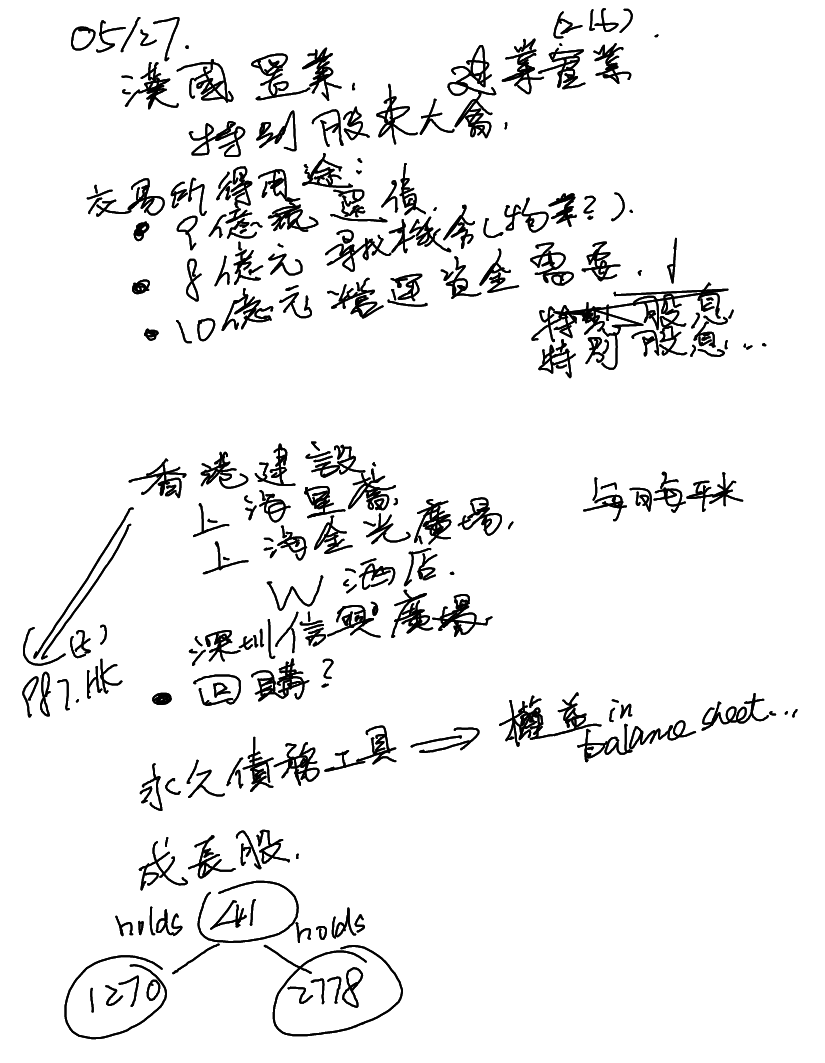 05/27.
漢國置業.
(216).
建業實業
特別股東大會.
交易所得用途:
• 9億 還債.
• 8億元 尋找機會(物業?).
• 10億元 營運資金需要.
特別股息
特別股息...
香港建設
上海星薈,
上海金光廣場,
每日每平米
W 酒店.
深圳信興廣場
987.HK
• 回購?
永久債務工具 ⇒ 權益 in
balance sheet...
成長股.
holds 41 holds
1270 2778